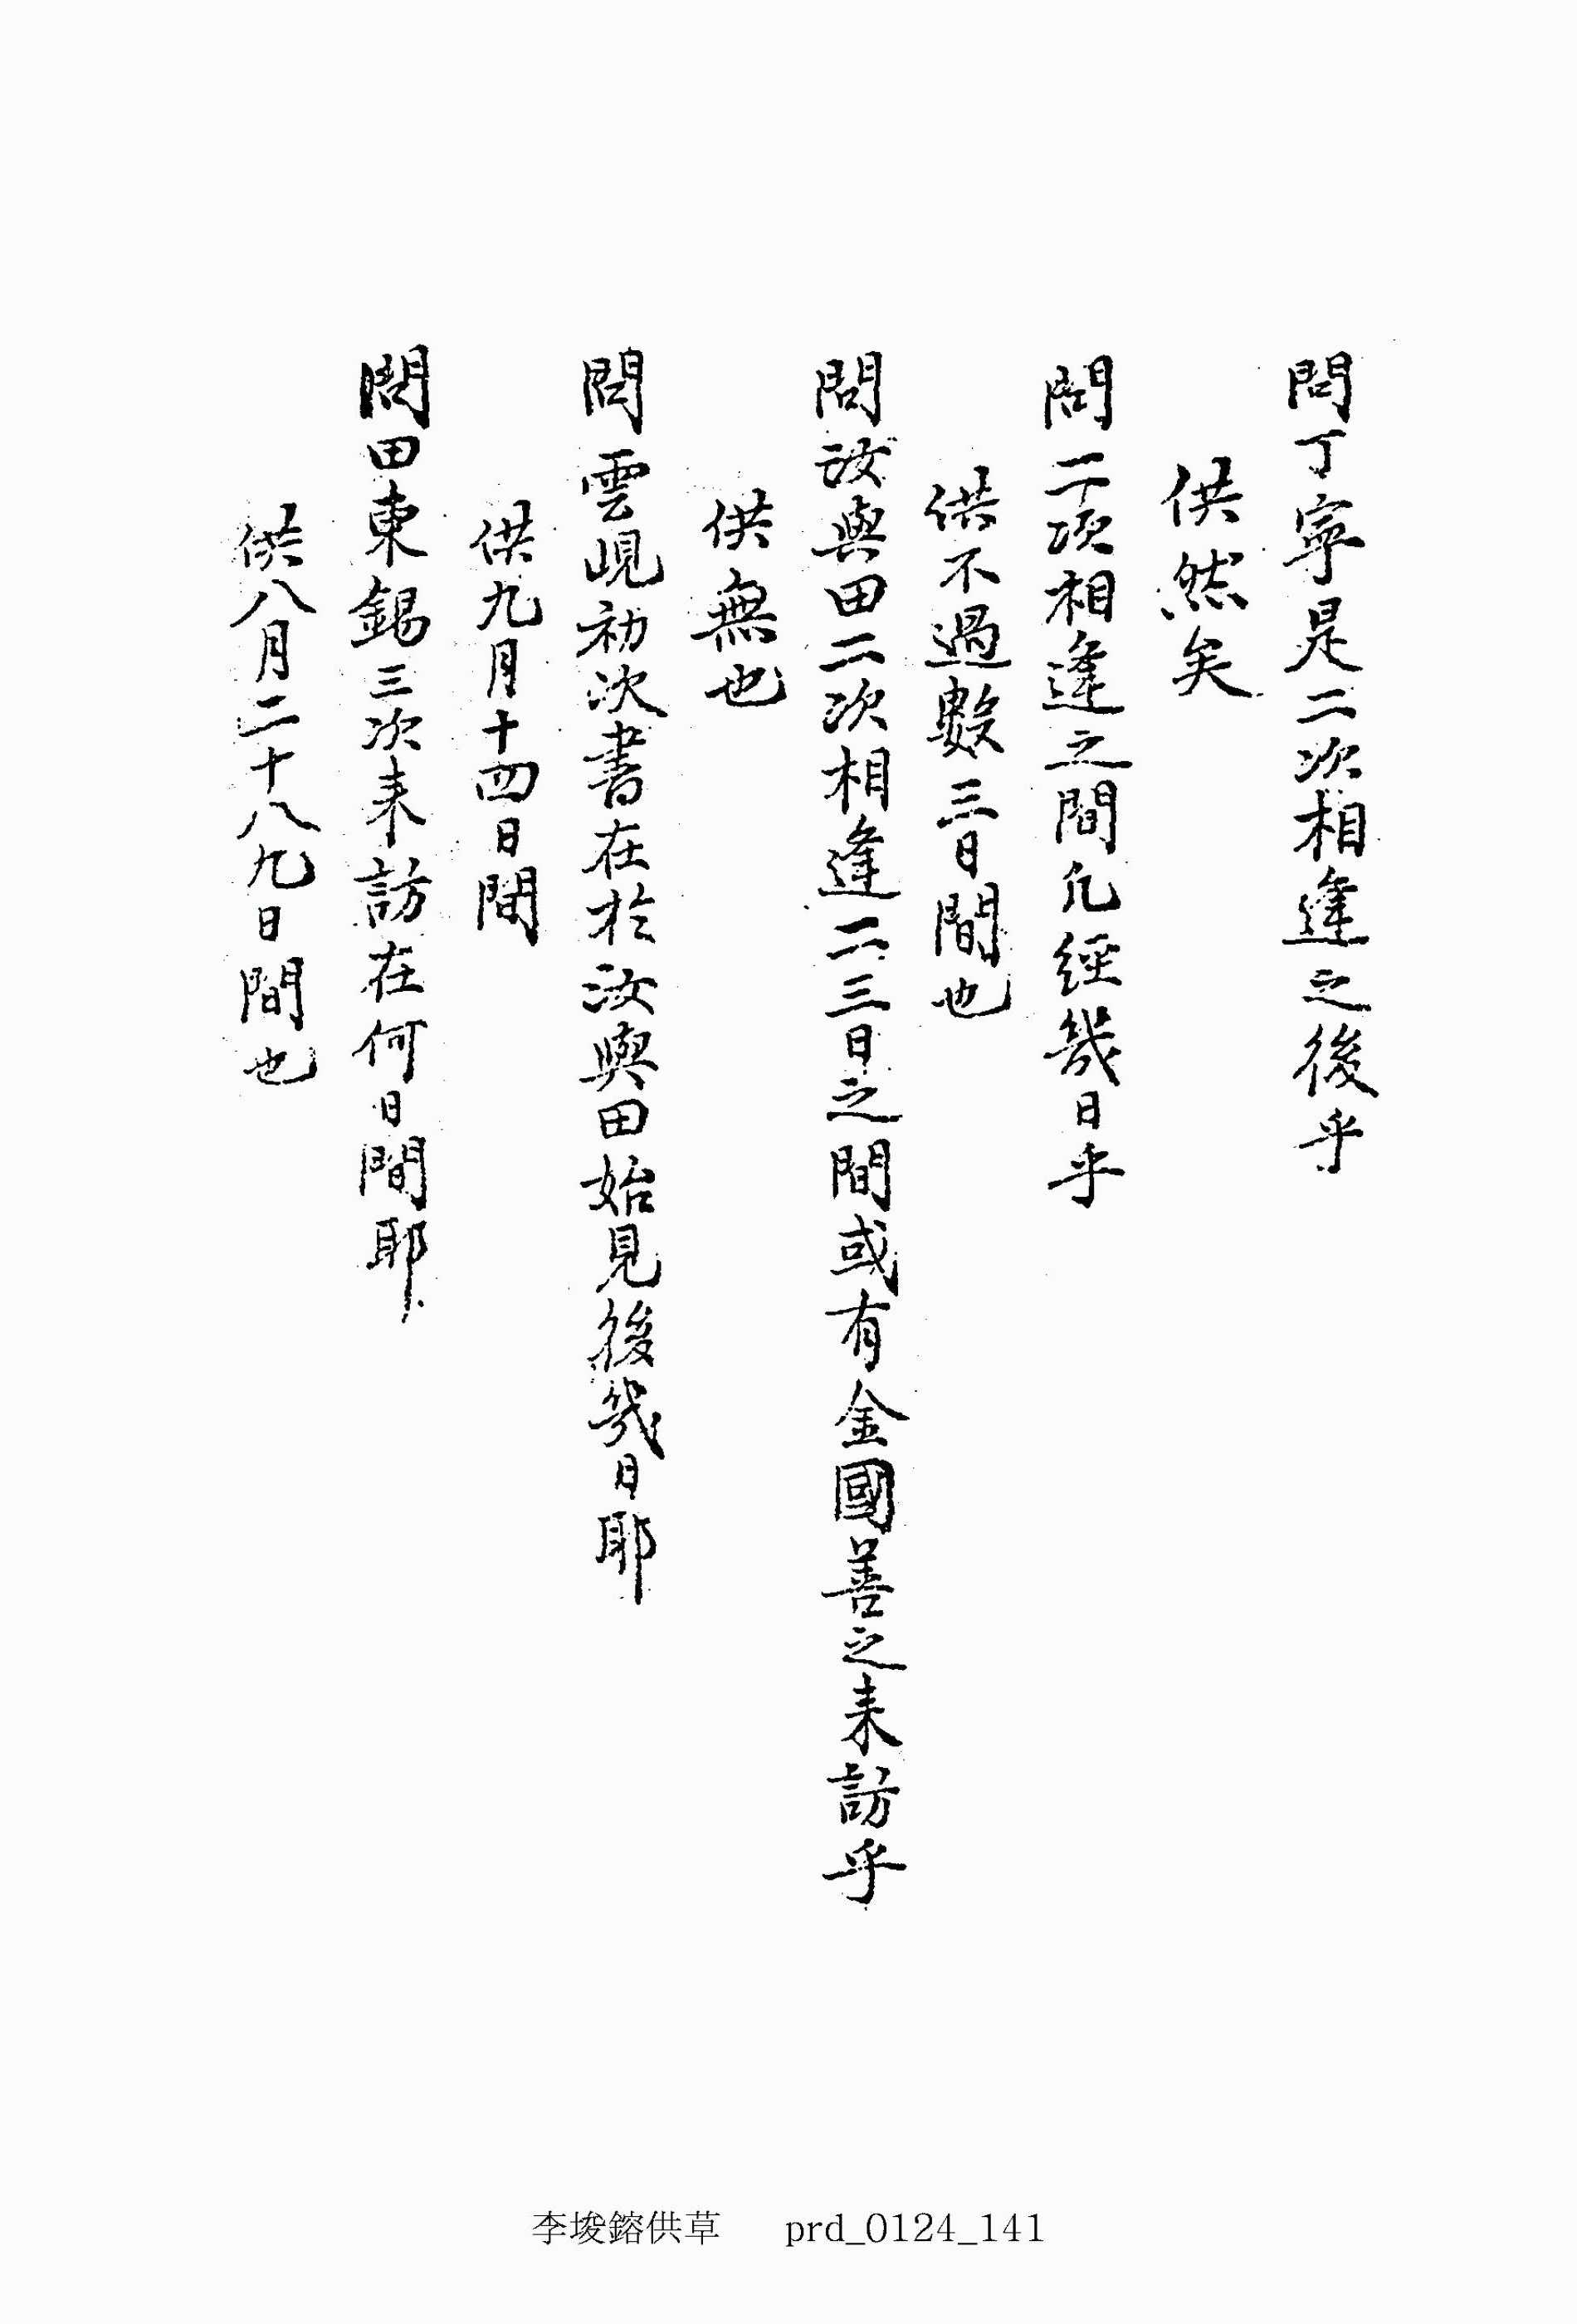 問丁寧是二次相逢之後乎
供然矣
問二次相逢之間凡經幾日乎
供不過數三日間也
問汝與田二次相逢二三日之間或有金國善之来訪乎
供無也
問雲峴初次書在於汝與田始見後幾日耶
供九月十四日間
問田東錫三次来訪在何日間耶
供八月二十八九日間也
李埈鎔供草 prd_0124_141